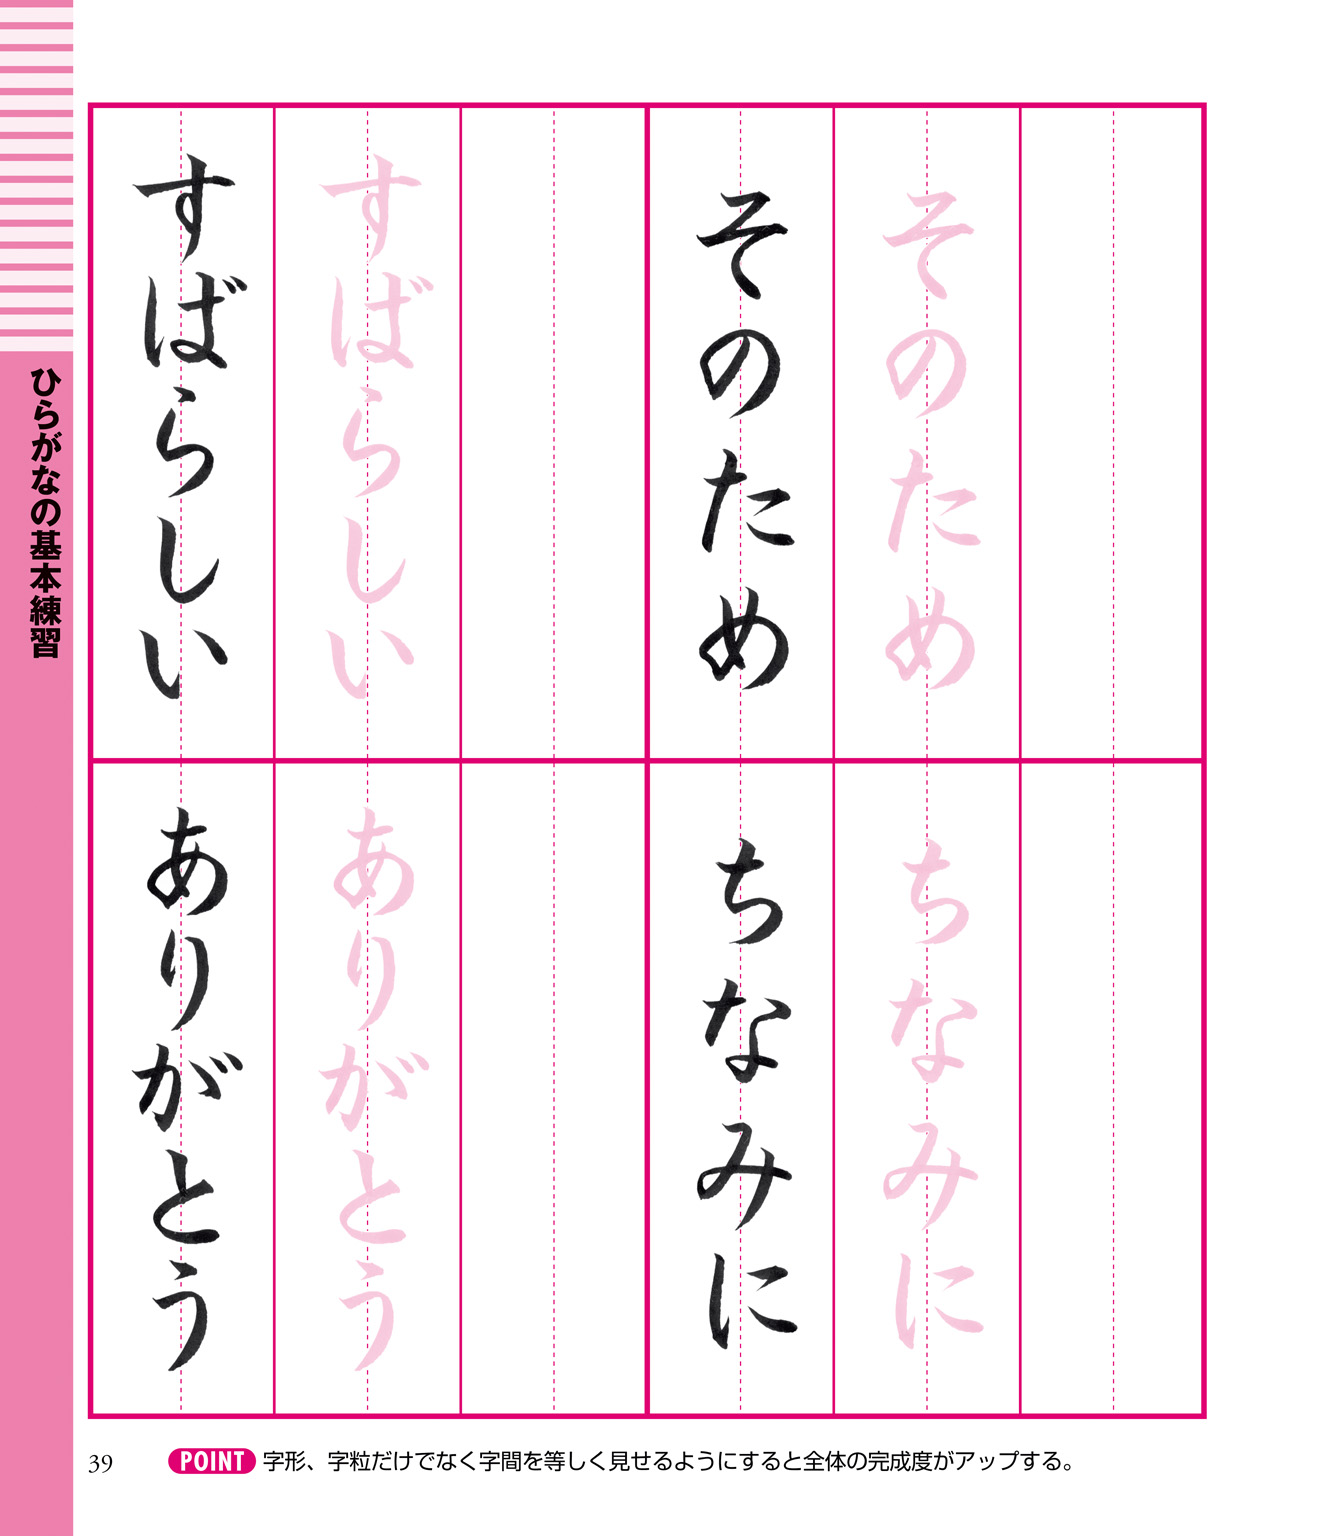 ひらがなの基本練習
そのため
そのため
すばらしい
すばらしい
ちなみに
ちなみに
ありがとう
ありがとう
39
POINT 字形、字粒だけでなく字間を等しく見せるようにすると全体の完成度がアップする。